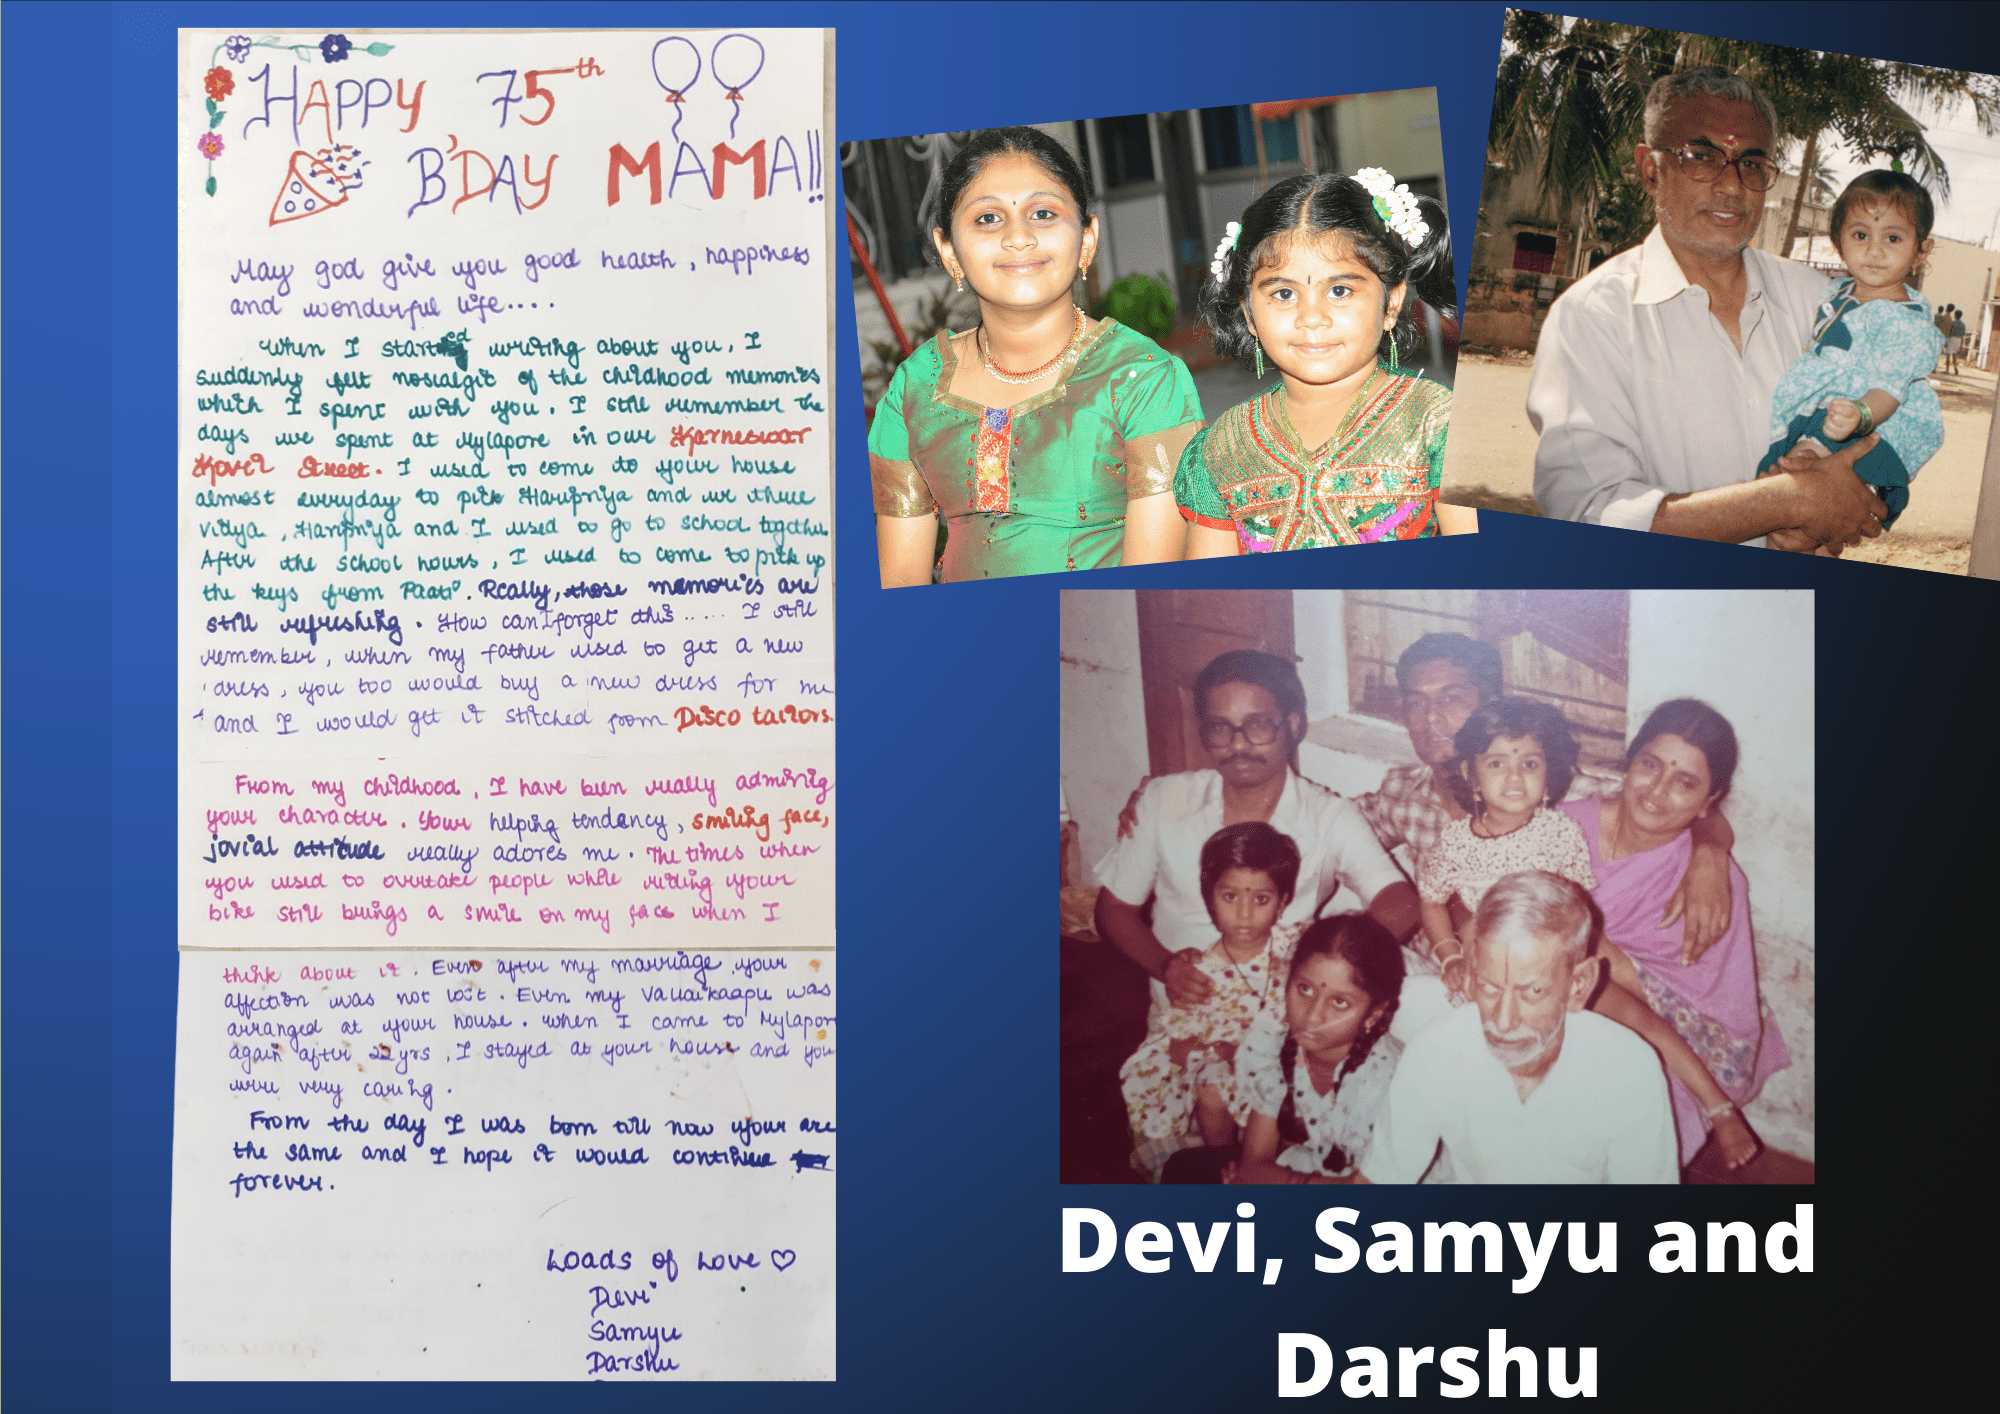 HAPPY 75th
B'DAY MAMA!!
May god give you good health, happiness
and wonderful life....
When I started writing about you, I
suddenly felt nostalgic of the childhood memories
which I spent with you. I still remember the
days we spent at Mylapore in our Karneswar
Kovil Street. I used to come to your house
almost everyday to pick Haripriya and we three
vidya, Haripriya and I used to go to school together
After the school hours, I used to come to pick up
the keys from Paati. Really, those memories are
still refreshing. How can I forget this..... I still
remember, when my father used to get a new
dress, you too would buy a new dress for me
and I would get it stitched from Disco tailors.
From my childhood, I have been really admiring
your character. Your helping tendency, smiling face,
jovial attitude really adores me. The times when
you used to overtake people while riding your
bike still brings a smile on my face when I
think about it. Even after my marriage your
affection was not lost. Even my Valaikaapu was
arranged at your house. When I came to Mylapore
again after 22 yrs, I stayed at your house and you
were very caring.
From the day I was born till now your are
the same and I hope it would continue
forever.
Loads of Love
Devi
Samyu
Darshu
Devi, Samyu and
Darshu